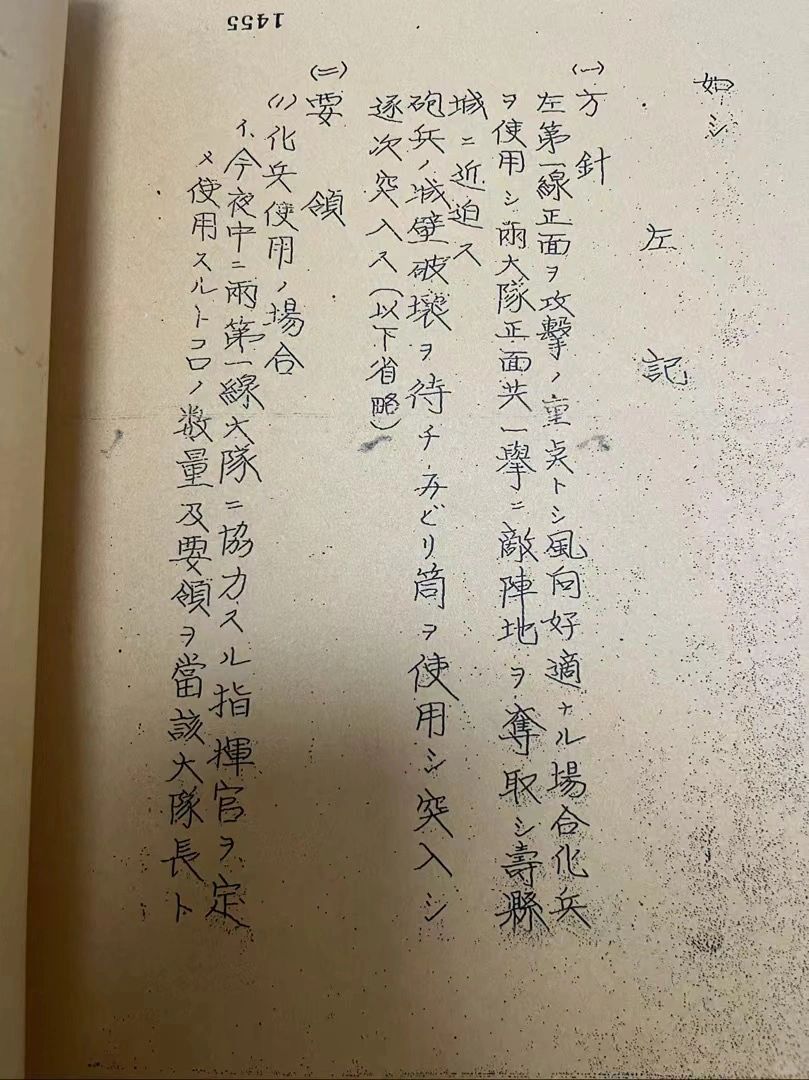 1455
如シ
左 記
(一)方針
左第一線正面ヲ攻撃ノ重点トシ風向好適ナル場合化兵
ヲ使用シ兩大隊正面共一擧ニ敵陣地ヲ奪取シ壽縣
城ニ近迫ス
砲兵ノ城壁破壞ヲ待チみどり筒ヲ使用シ突入シ
逐次突入ス(以下省略)
(二)要領
(1)化兵使用ノ場合
イ、今夜中ニ兩第一線大隊ニ協力スル指揮官ヲ定
メ使用スルトコロノ数量及要領ヲ當該大隊長ト